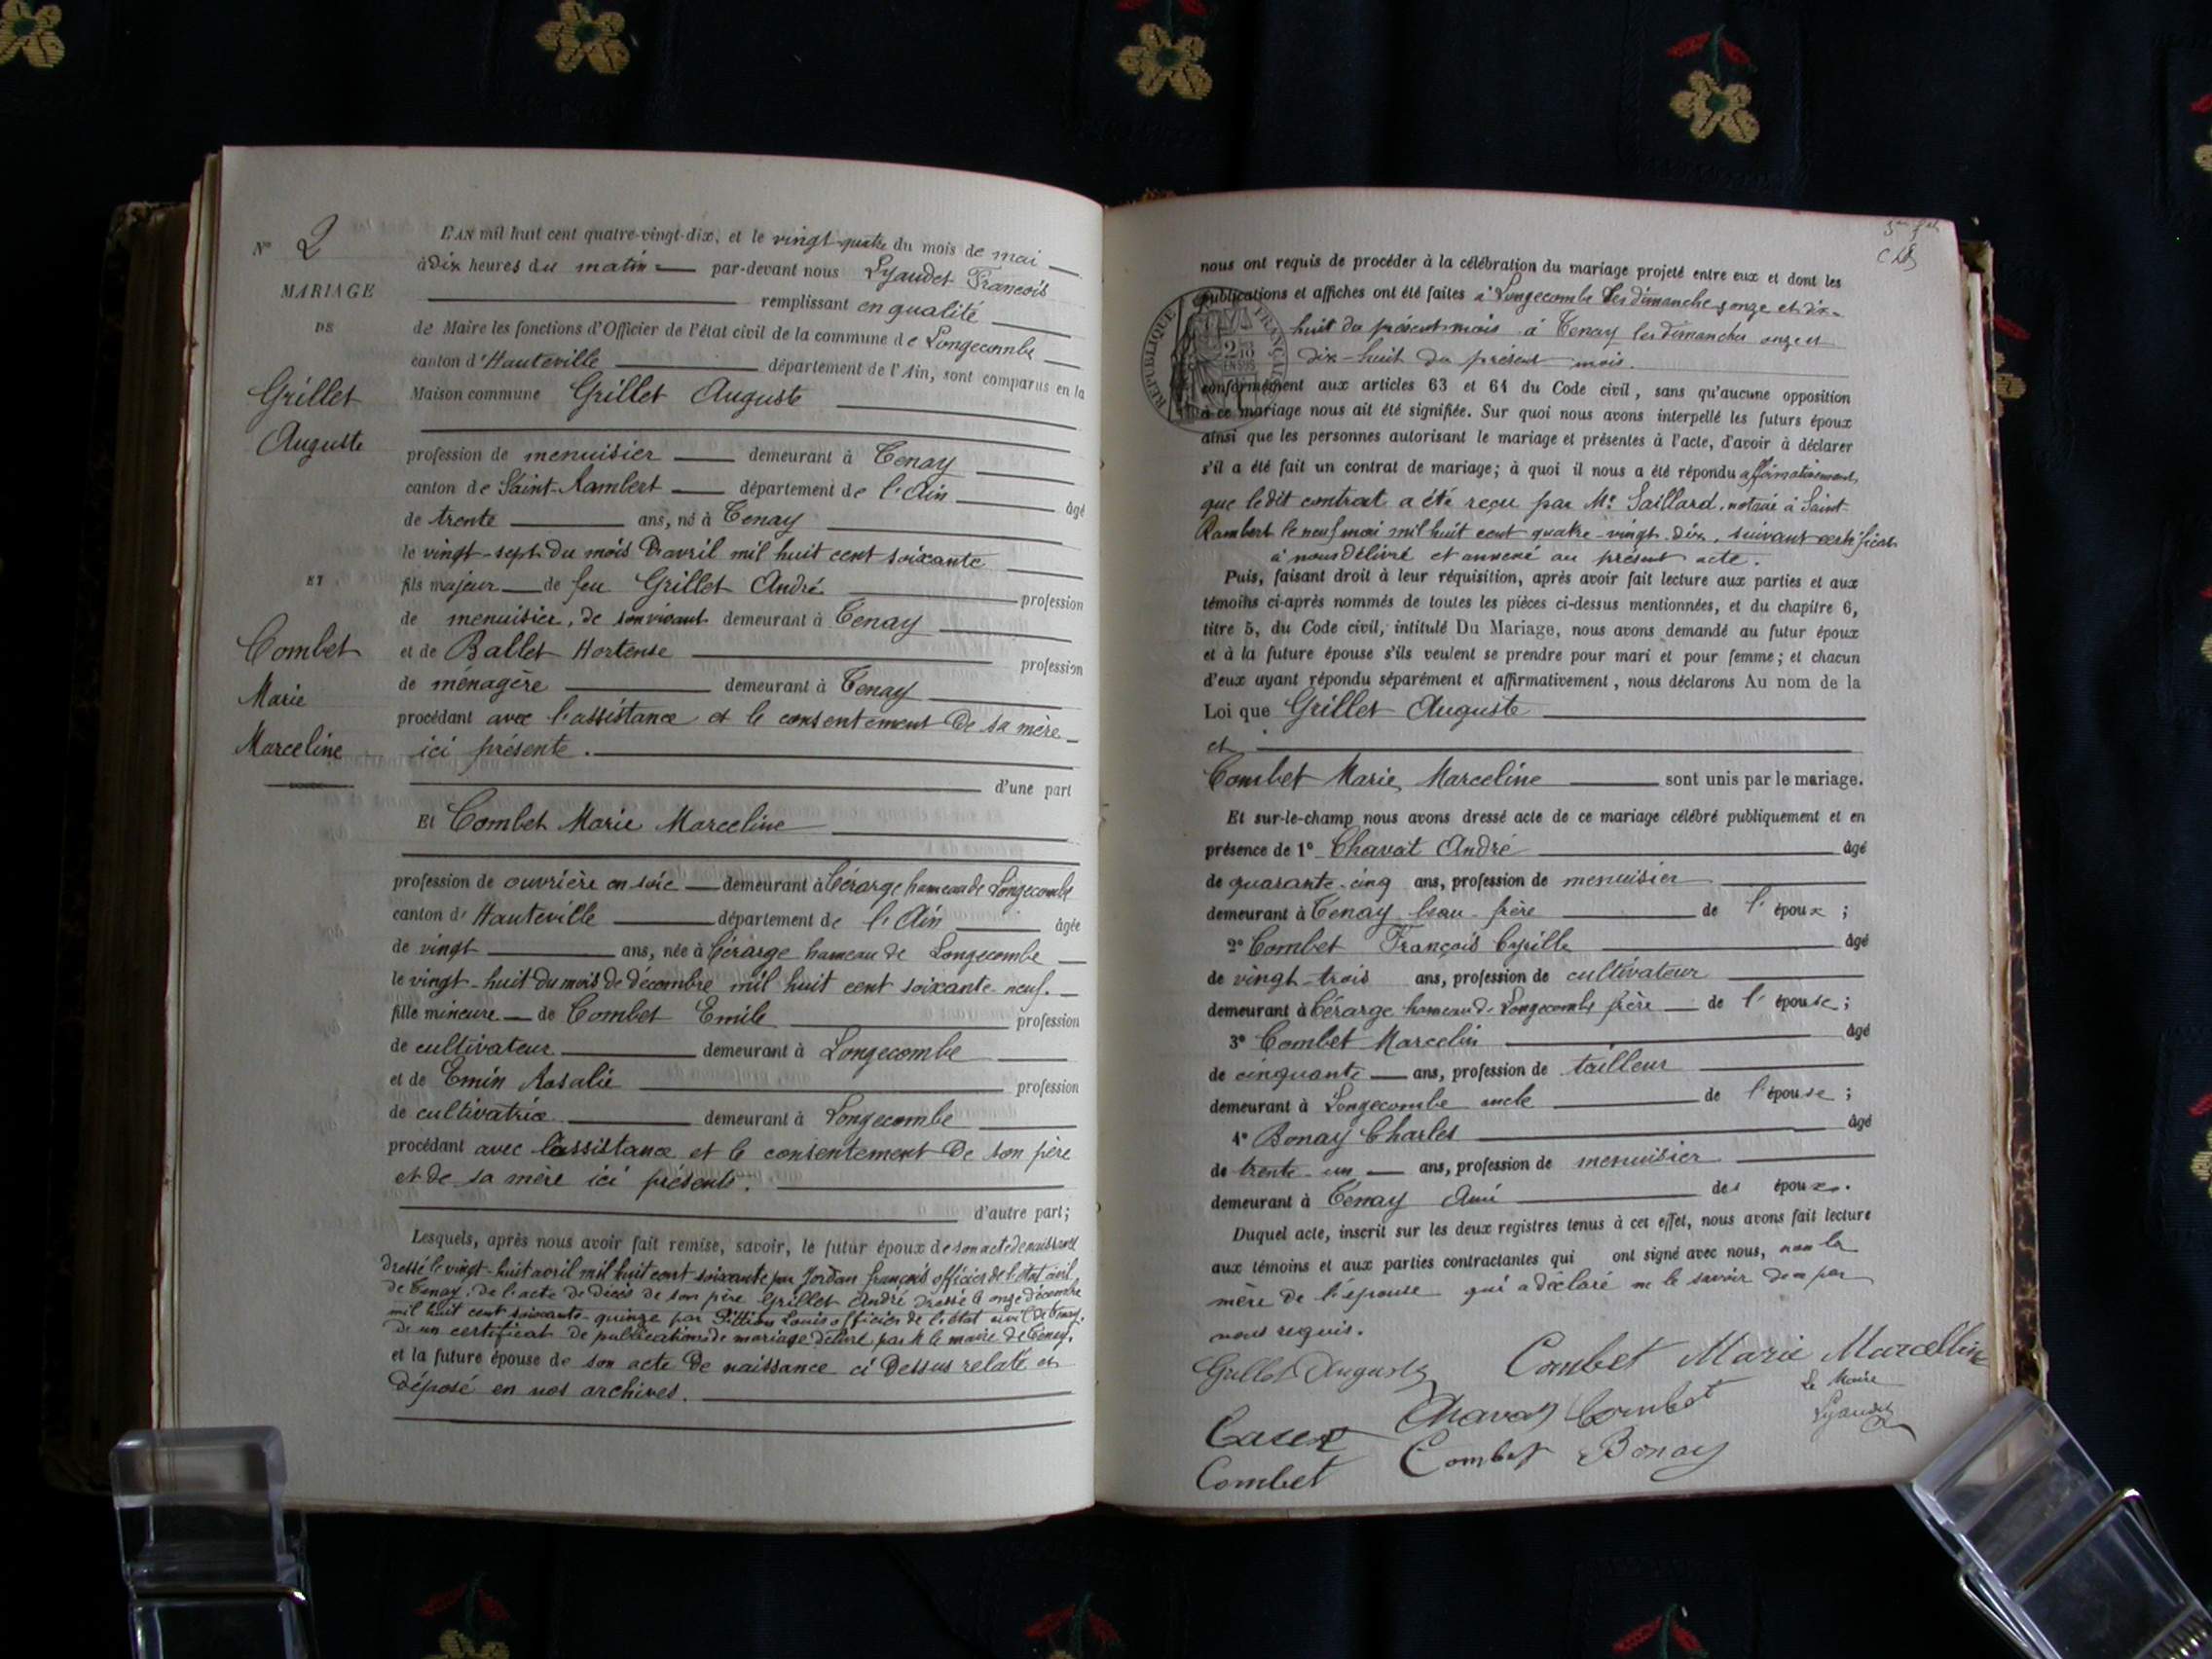 N° 2
MARIAGE
DE
Grillet
Auguste
ET
Combet
Marie
Marceline
L'AN mil huit cent quatre-vingt-dix, et le vingt-quatre du mois de mai
à dix heures du matin par-devant nous Lyaudet François
remplissant en qualité
de Maire les fonctions d'Officier de l'état civil de la commune de Longecombe
canton d'Hauteville département de l'Ain, sont comparus en la
Maison commune Grillet Auguste
profession de menuisier demeurant à Tenay
canton de Saint-Rambert département de l'Ain âgé
de trente ans, né à Tenay
le vingt-sept du mois d'avril mil huit cent soixante
fils majeur de feu Grillet André profession
de menuisier, de son vivant demeurant à Tenay
et de Ballet Hortense profession
de ménagère demeurant à Tenay
procédant avec l'assistance et le consentement de sa mère
ici présente.
d'une part
Et Combet Marie Marceline
profession de ouvrière en soie demeurant à Cérarge hameau de Longecombe
canton d'Hauteville département de l'Ain âgée
de vingt ans, née à Cérarge hameau de Longecombe
le vingt-huit du mois de décembre mil huit cent soixante-neuf.
fille mineure de Combet Emile profession
de cultivateur demeurant à Longecombe
et de Emin Rosalie profession
de cultivatrice demeurant à Longecombe
procédant avec l'assistance et le consentement de son père
et de sa mère ici présents.
d'autre part;
Lesquels, après nous avoir fait remise, savoir, le futur époux de son acte de naissance
dressé le vingt-huit avril mil huit cent soixante par Jordan françois officier de l'état civil
de Tenay, de l'acte de décès de son père Grillet André dressé le onze décembre
mil huit cent soixante-quinze par Louis officier de l'état civil de Tenay,
de un certificat de publications de mariage délivré par M. le maire de Tenay,
et la future épouse de son acte de naissance ci dessus relaté et
déposé en nos archives.
nous ont requis de procéder à la célébration du mariage projeté entre eux et dont les
publications et affiches ont été faites à Longecombe les dimanches onze et dix-
huit du présent mois à Tenay les dimanches onze et
dix-huit du présent mois.
RÉPUBLIQUE FRANÇAISE
conformément aux articles 63 et 64 du Code civil, sans qu'aucune opposition
à ce mariage nous ait été signifiée. Sur quoi nous avons interpellé les futurs époux
ainsi que les personnes autorisant le mariage et présentes à l'acte, d'avoir à déclarer
s'il a été fait un contrat de mariage; à quoi il nous a été répondu affirmativement,
que ledit contrat a été reçu par Me Saillard, notaire à Saint-
Rambert le neuf mai mil huit cent quatre-vingt-dix, suivant certificat
à nous délivré et annexé au présent acte.
Puis, faisant droit à leur réquisition, après avoir fait lecture aux parties et aux
témoins ci-après nommés de toutes les pièces ci-dessus mentionnées, et du chapitre 6,
titre 5, du Code civil, intitulé Du Mariage, nous avons demandé au futur époux
et à la future épouse s'ils veulent se prendre pour mari et pour femme; et chacun
d'eux ayant répondu séparément et affirmativement, nous déclarons Au nom de la
Loi que Grillet Auguste
et
Combet Marie Marceline sont unis par le mariage.
Et sur-le-champ nous avons dressé acte de ce mariage célébré publiquement et en
présence de 1° Chavat André âgé
de quarante-cinq ans, profession de menuisier
demeurant à Tenay beau-frère de l'époux;
2° Combet François Cyrille âgé
de vingt-trois ans, profession de cultivateur
demeurant à Cérarge hameau de Longecombe frère de l'épouse;
3° Combet Marcelin âgé
de cinquante ans, profession de tailleur
demeurant à Longecombe oncle de l'épouse;
4° Bonay Charles âgé
de trente-un ans, profession de menuisier
demeurant à Tenay Ami des époux.
Duquel acte, inscrit sur les deux registres tenus à cet effet, nous avons fait lecture
aux témoins et aux parties contractantes qui ont signé avec nous, non la
mère de l'épouse qui a déclaré ne le savoir de ce par
nous requis.
Grillet Auguste Combet Marie Marcelline
Chavat Combet Le Maire
Lyaudet
Combet Bonay
Combet